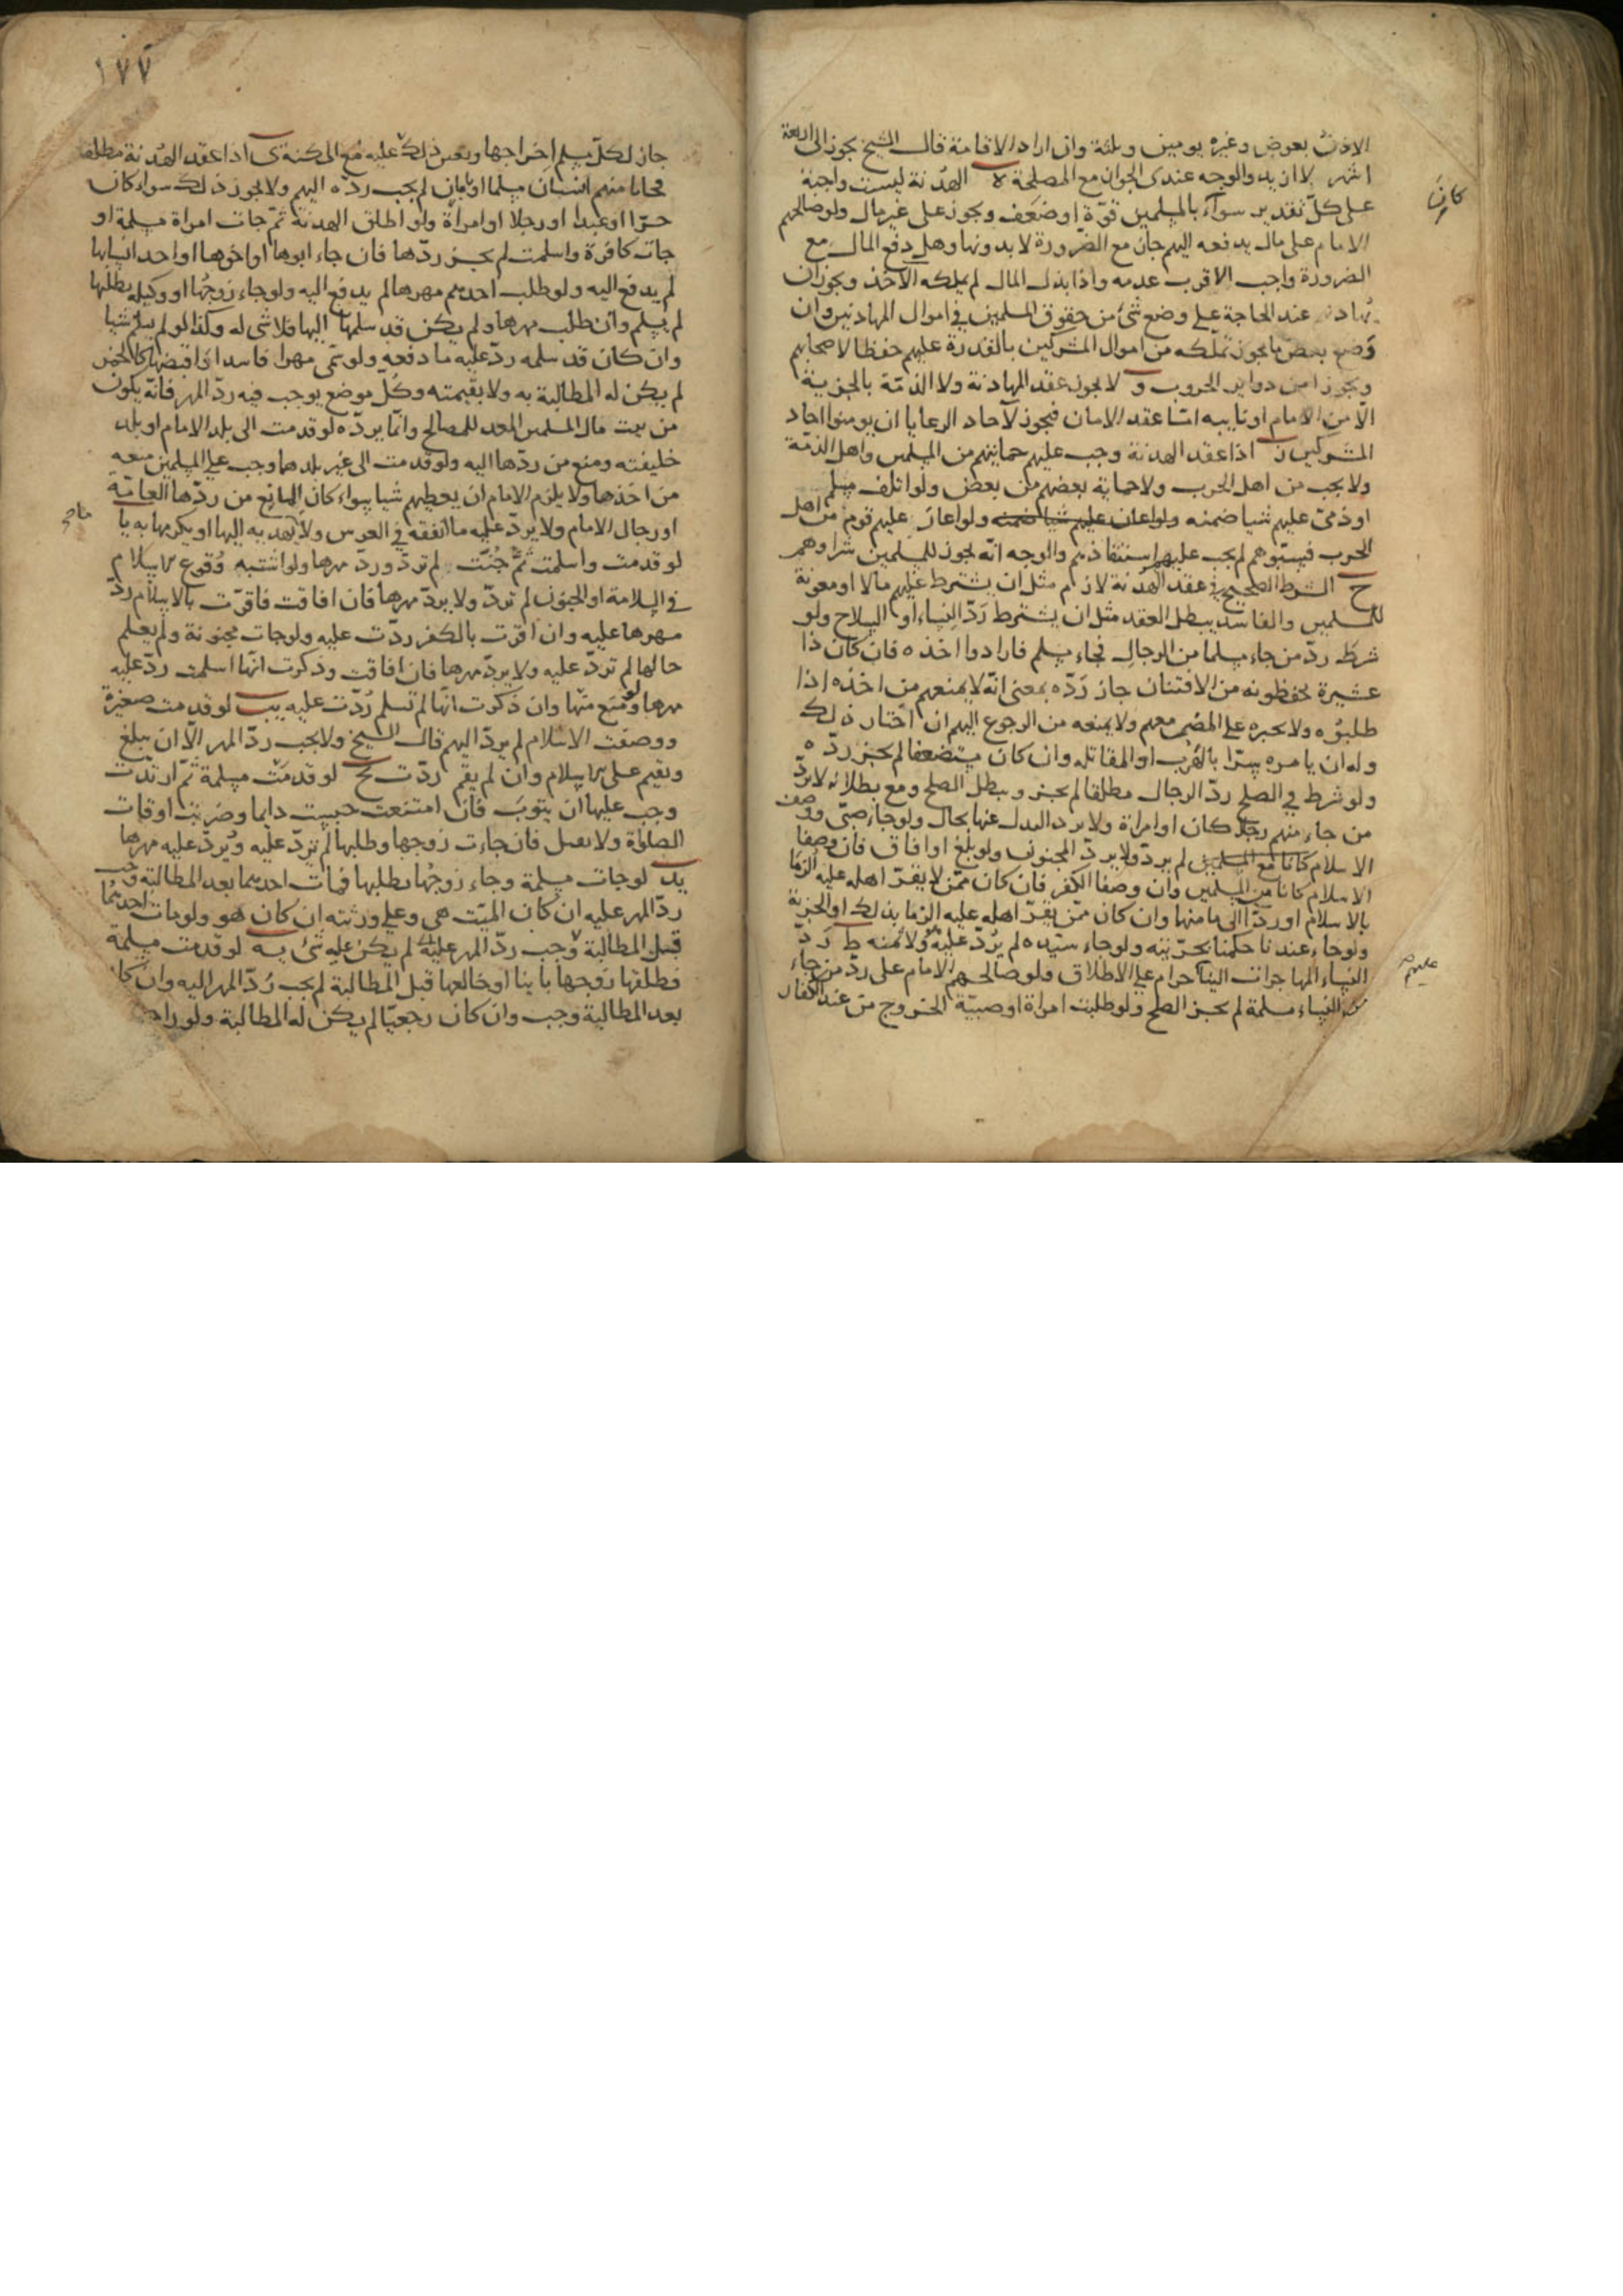 الاذن بعوض وغيره يومين وثلثة وان اراد الاقامة قال الشيخ يجوز الى اربعة
اشهر لا ازيد والوجه عندى الجواز مع المصلحة ه الهدنة ليست واجبة
على كل تقدير سواء بالمسلمين قوة او ضعف ويجوز على غير مال ولو صالحهم
كان
الامام على مال يدفعه اليهم جاز مع الضرورة لا بدونها وهل دفع المال مع
الضرورة واجب الاقرب عدمه واذا بذل المال لم يملكه الآخذ ويجوز ان
يهادن عند الحاجة على وضع شئ من حقوق المسلمين في اموال المهادنين وان
وضع بعض ما يجوز تملكه من اموال المشركين بالقدرة عليهم حفظا لاصحابهم
وتحرزا من دواير الحروب و لا يجوز عقد المهادنة ولا الذمة بالجزية
الا من الامام او نايبه اما عقد الامان فيجوز لآحاد الرعايا ان يومنوا احاد
المشركين ز اذا عقد الهدنة وجب عليهم حمايتهم من المسلمين واهل الذمة
ولا يجب من اهل الحرب ولا حماية بعضهم من بعض ولو اتلف مسلم
او ذمى عليهم شيا ضمنه ولو اغار عليهم قوم من اهل
الحرب فسبوهم لم يجب عليهم استنقاذهم والوجه انه يجوز للمسلمين شراوهم
ح الشرط الصحيح في عقد الهدنة لازم مثل ان يشترط عليهم مالا او معونة
للمسلمين والفاسد يبطل العقد مثل ان يشترط رد النساء او السلاح ولو
شرط رد من جاء مسلما من الرجال فجاء مسلم فارادوا اخذه فان كان ذا
عشيرة يحفظونه من الافتتان جاز رده بمعنى انه لا يمنعهم من اخذه اذا
طلبوه ولا يجبره على المضى معهم ولا يمنعه من الرجوع اليهم ان اختار ذلك
وله ان يامره سرا بالهرب او المقاتلة وان كان مستضعفا لم يجز رده
ولو شرط في الصلح رد الرجال مطلقا لم يجز ويبطل الصلح ومع بطلانه لا يرد
من جاء منهم رجلا كان او امراة ولا يرد البدل عنها بحال ولو جاء صبى ووصف
الاسلام كانا مع المسلمين لم يرد ولا يرد المجنون ولو بلغ او افاق فان وصفا
الاسلام كانا من المسلمين وان وصفا الكفر فان كان ممن لا يقر اهله عليه الزما
بالاسلام او ردا الى مامنها وان كان ممن يقر اهله عليه الزما بذلك او الجزية
ولو جاء عبد لنا حكمنا بحريته ولو جاء سيده لم يرد عليه ولا ثمنه ط رد
النساء المهاجرات الينا حرام على الاطلاق ولو صالحهم الامام على رد من جاء
عليهم
من النساء مسلمة لم يجز الصلح ولو طلبت امراة او صبية الخروج من عند الكفار
١٧٧
جاز لكل مسلم اخراجها وتعين ذلك عليه مع المكنة ى اذا عقد الهدنة مطلقا
فجاءنا منهم انسان مسلما او بامان لم يجب رده اليهم ولا يجوز ذلك سواء كان
حرا او عبدا او رجلا او امراة ولو اطلق الهدنة ثم جات امراة مسلمة او
جات كافرة واسلمت لم يجز ردها فان جاء ابوها او اخوها او احد انسابها
لم يدفع اليه ولو طلب احدهم مهرها لم يدفع اليه ولو جاء زوجها او وكيله يطلبها
لم يسلم وان طلب مهرها ولم يكن قد سلمها اليها فلا شى له وكذا لو لم يسلم شيا
وان كان قد سلمه رد عليه ما دفعه ولو سمى مهرا فاسدا او اقبضها كالخمر
لم يكن له المطالبة به ولا بقيمته وكل موضع يوجب فيه رد المهر فانه يكون
من بيت مال المسلمين المعد للمصالح وانما يرده لو قدمت الى بلد الامام او بلد
خليفته ومنع من ردها اليه ولو قدمت الى غير بلدهما وجب على المسلمين منعه
من اخذها ولا يلزم الامام ان يعطيهم شيا سواء كان المانع من ردها العامة
او رجال الامام ولا يرد عليه ما انفقه في العرس ولا يهديه اليها او يكرمها به يا
لو قدمت واسلمت ثم جنت لم ترد ورد مهرها ولو اشتبه وقوع الاسلام
في السلامة او الجنون لم ترد ولا يرد مهرها فان افاقت فاقرت بالاسلام رد
مهرها عليه وان اقرت بالكفر ردت عليه ولو جات مجنونة ولم يعلم
حالها لم ترد عليه ولا يرد مهرها فان افاقت وذكرت انها اسلمت رد عليه
مهرها ومنع منها وان ذكرت انها لم تسلم ردت عليه يب لو قدمت صغيرة
ووصفت الاسلام لم يرد اليهم قال الشيخ ولا يجب رد المهر الا ان يبلغ
وتقيم على الاسلام وان لم يقم ردت يج لو قدمت مسلمة ثم ارتدت
وجب عليها ان يتوب فان امتنعت حبست دايما وضربت اوقات
الصلوة ولا تقتل فان جاءت زوجها وطلبها لم ترد عليه ويرد عليه مهرها
يد لو جات مسلمة وجاء زوجها يطلبها فمات احدهما بعد المطالبة وجب
رد المهر عليه ان كان الميت هى وعلى ورثته ان كان هو ولو مات احدهما
قبل المطالبة وجب رد المهر عليه لم يكن عليه شئ يه لو قدمت مسلمة
فطلقها زوجها باينا او خالعها قبل المطالبة لم يجب رد المهر اليه وان كان
بعد المطالبة وجب وان كان رجعيا لم يكن له المطالبة ولو راجع